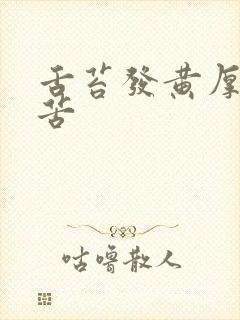 舌苔發黃厚
苦
咕嚕散人